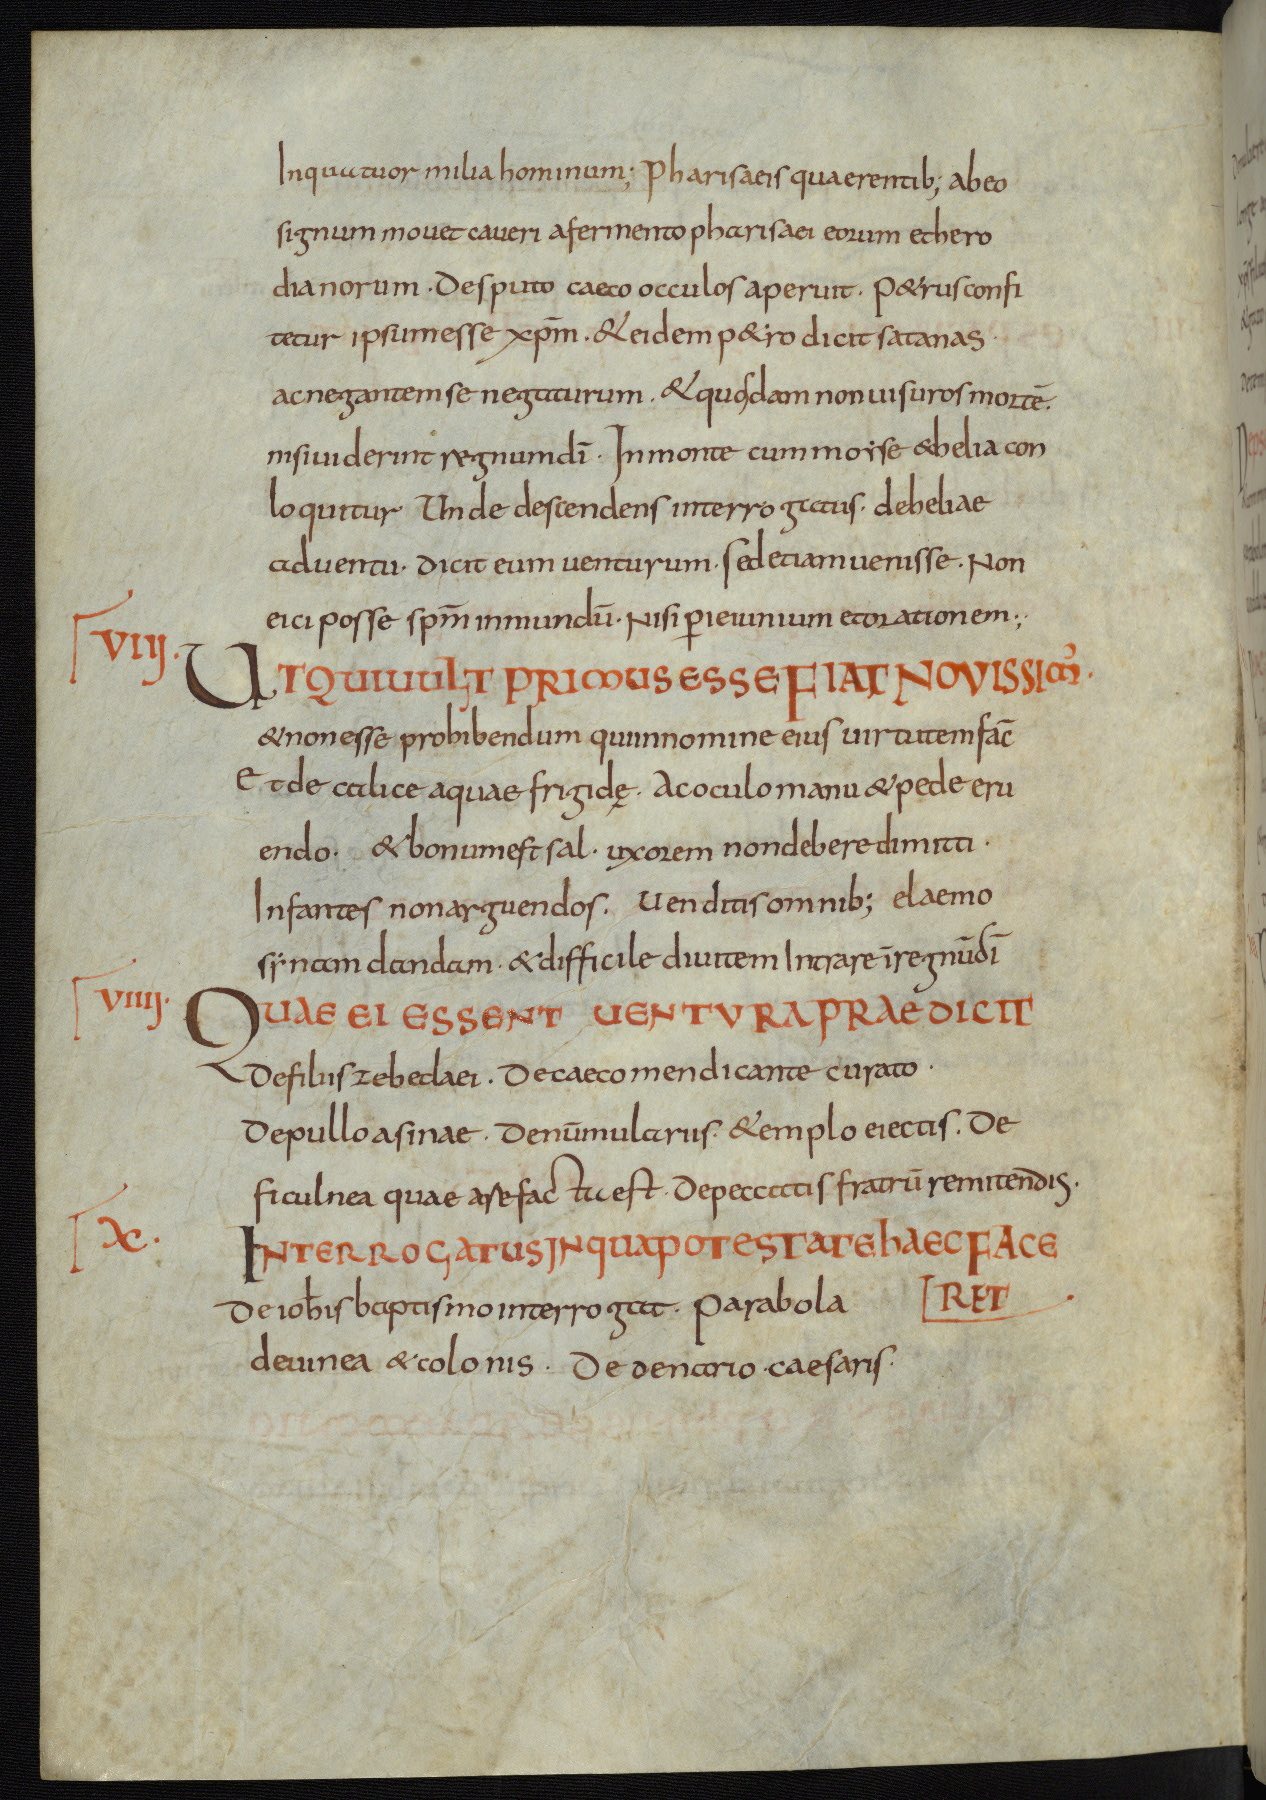 Inquattuor milia hominum; Pharisaeis quaerentib; abeo
signum mouet caueri afermento pharisaei eorum ethero
dianorum · Desputo caeco occulos aperuit · P&rus confi
tetur ipsumesse xp̄m · & eidem p&ro dicit satanas ·
ac negantem se negaturum · & quosdam non uisuros mortē ·
nisi uiderint regnum dī · In monte cum moÿse & helia con
loquitur · Unde descendens interrogatus · de heliae
aduentu · dicit eum uenturum · sed etiam uenisse · Non
eici posse spm̄ inmundū · Nisi ꝑ ieiunium et orationem ;
VIII.
UT QUI UULT PRIMUS ESSE FIAT NOVISSIM̄ ·
& non esse prohibendum qui in nomine eius uirtutem fac̄
Et de calice aquae frigidę · Ac oculo manu & pede eru
endo · & bonum est sal · uxorem non debere dimitti ·
Infantes non arguendos · Uenditis omnib; elaemo
sÿnam dandam · & difficile diuitem Intrare ī regnū dī
VIIII.
QUAE EI ESSENT UENTURA PRAEDICIT
De filiis zebedaei · De caeco mendicante curato ·
De pullo asinae · De nūmulariis · & emplo eiectis · De
ficulnea quae arefacta est · De peccatis fratrū remittendis ·
X.
INTERROGATUS IN QUA POTESTATE HAEC FACE
RET
De ioh̄is baptismo interrogat · Parabola
de uinea & colonis · De denario · caesaris ·